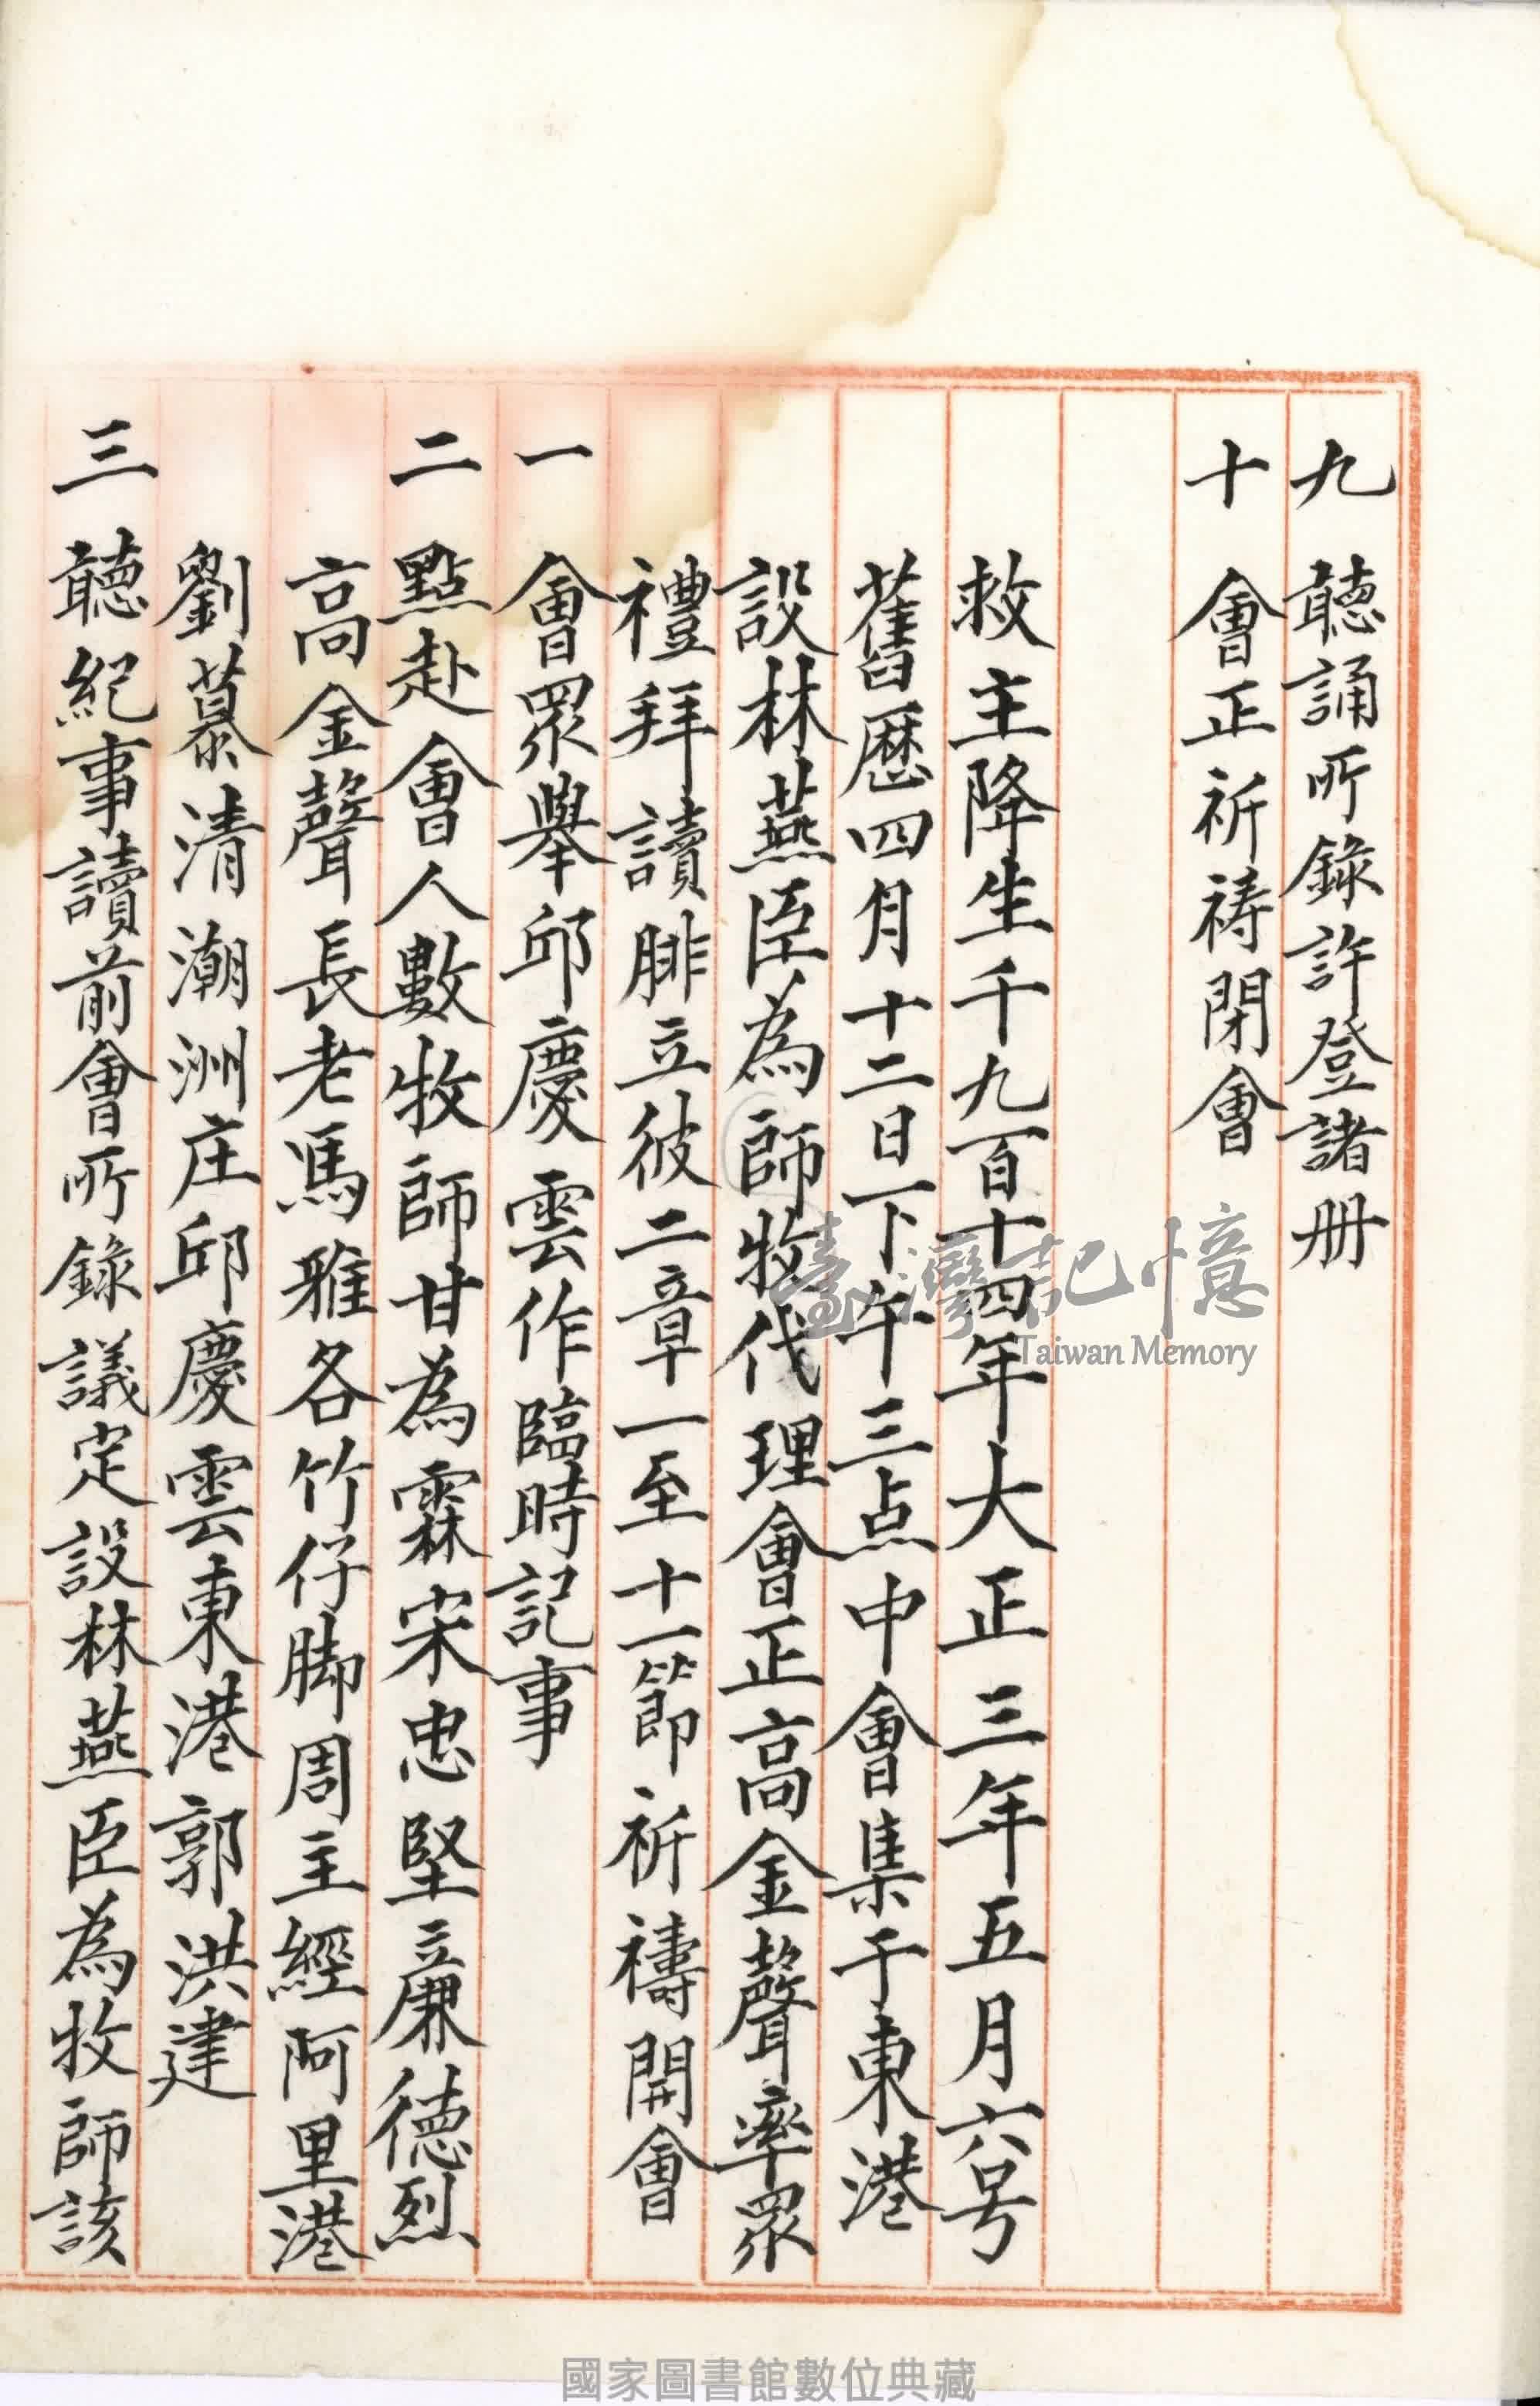 九 聽誦所錄許登諸册
十 會正祈祷閉會
救主降生千九百十四年大正三年五月六号
舊歷四月十二日下午三点中會集于東港
設林燕臣為師牧代理會正高金聲率眾
禮拜讀腓立彼二章一至十一節祈禱開會
一 會眾舉邱慶雲作臨時記事
二 點赴會人數牧師甘為霖宋忠堅廉德烈
高金聲長老馬雅各竹仔脚周主經阿里港
劉慕清潮洲庄邱慶雲東港郭洪建
三 聽紀事讀前會所錄議定設林燕臣為牧師該
臺灣記憶
Taiwan Memory
國家圖書館數位典藏